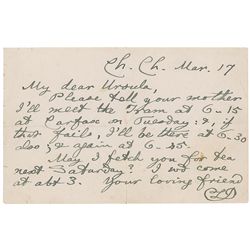 Ch. Ch. Mar. 17
My dear Ursula,
Please tell your mother
I'll meet the Tram at 6-15
at Carfax on Tuesday: &, if
this fails, I'll be there at 6-30
also, & again at 6-45.
May I fetch you for tea
next Saturday? I wd come
at abt 3. Your loving friend
CLD